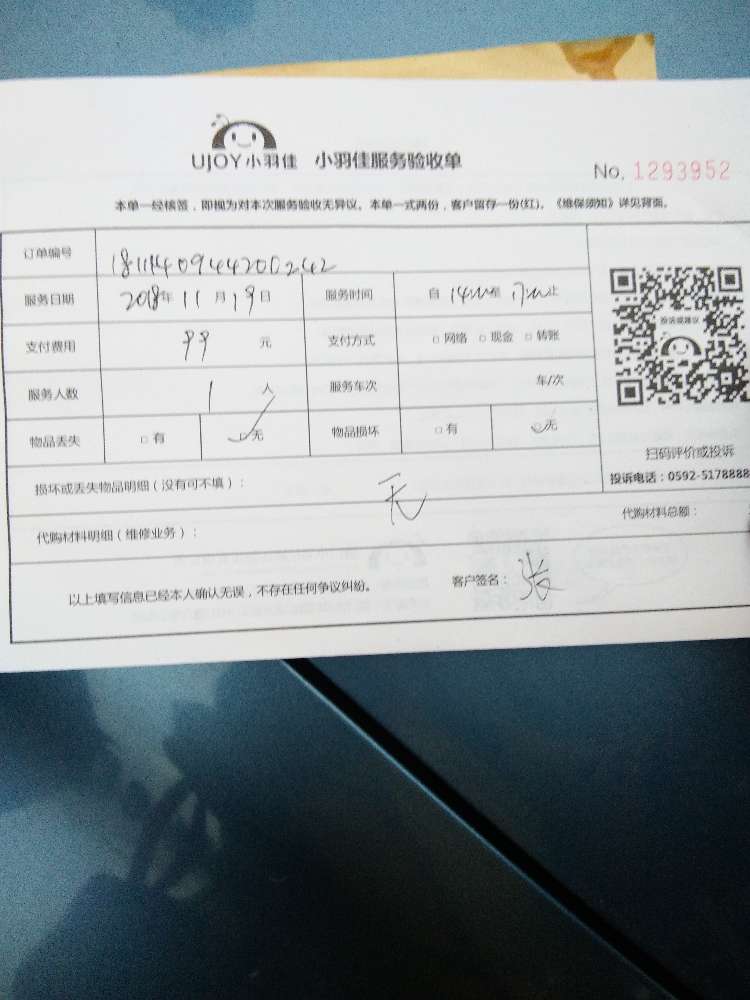 UJOY小羽佳 小羽佳服务验收单
No. 1293952
本单一经核签，即视为对本次服务验收无异议。本单一式两份，客户留存一份(红)。《维保须知》详见背面。
订单编号
服务日期 2018年 11 月 19 日 服务时间 自 14:00至 17:00止
支付费用 99 元 支付方式 □网络 □现金 □转账
服务人数 1 人 服务车次 车/次
物品丢失 □有 □无 物品损坏 □有 □无
投诉或建议
扫码评价或投诉
投诉电话：0592-5178888
损坏或丢失物品明细（没有可不填）： 无
代购材料明细（维修业务）： 代购材料总额：
以上填写信息已经本人确认无误，不存在任何争议纠纷。 客户签名：张